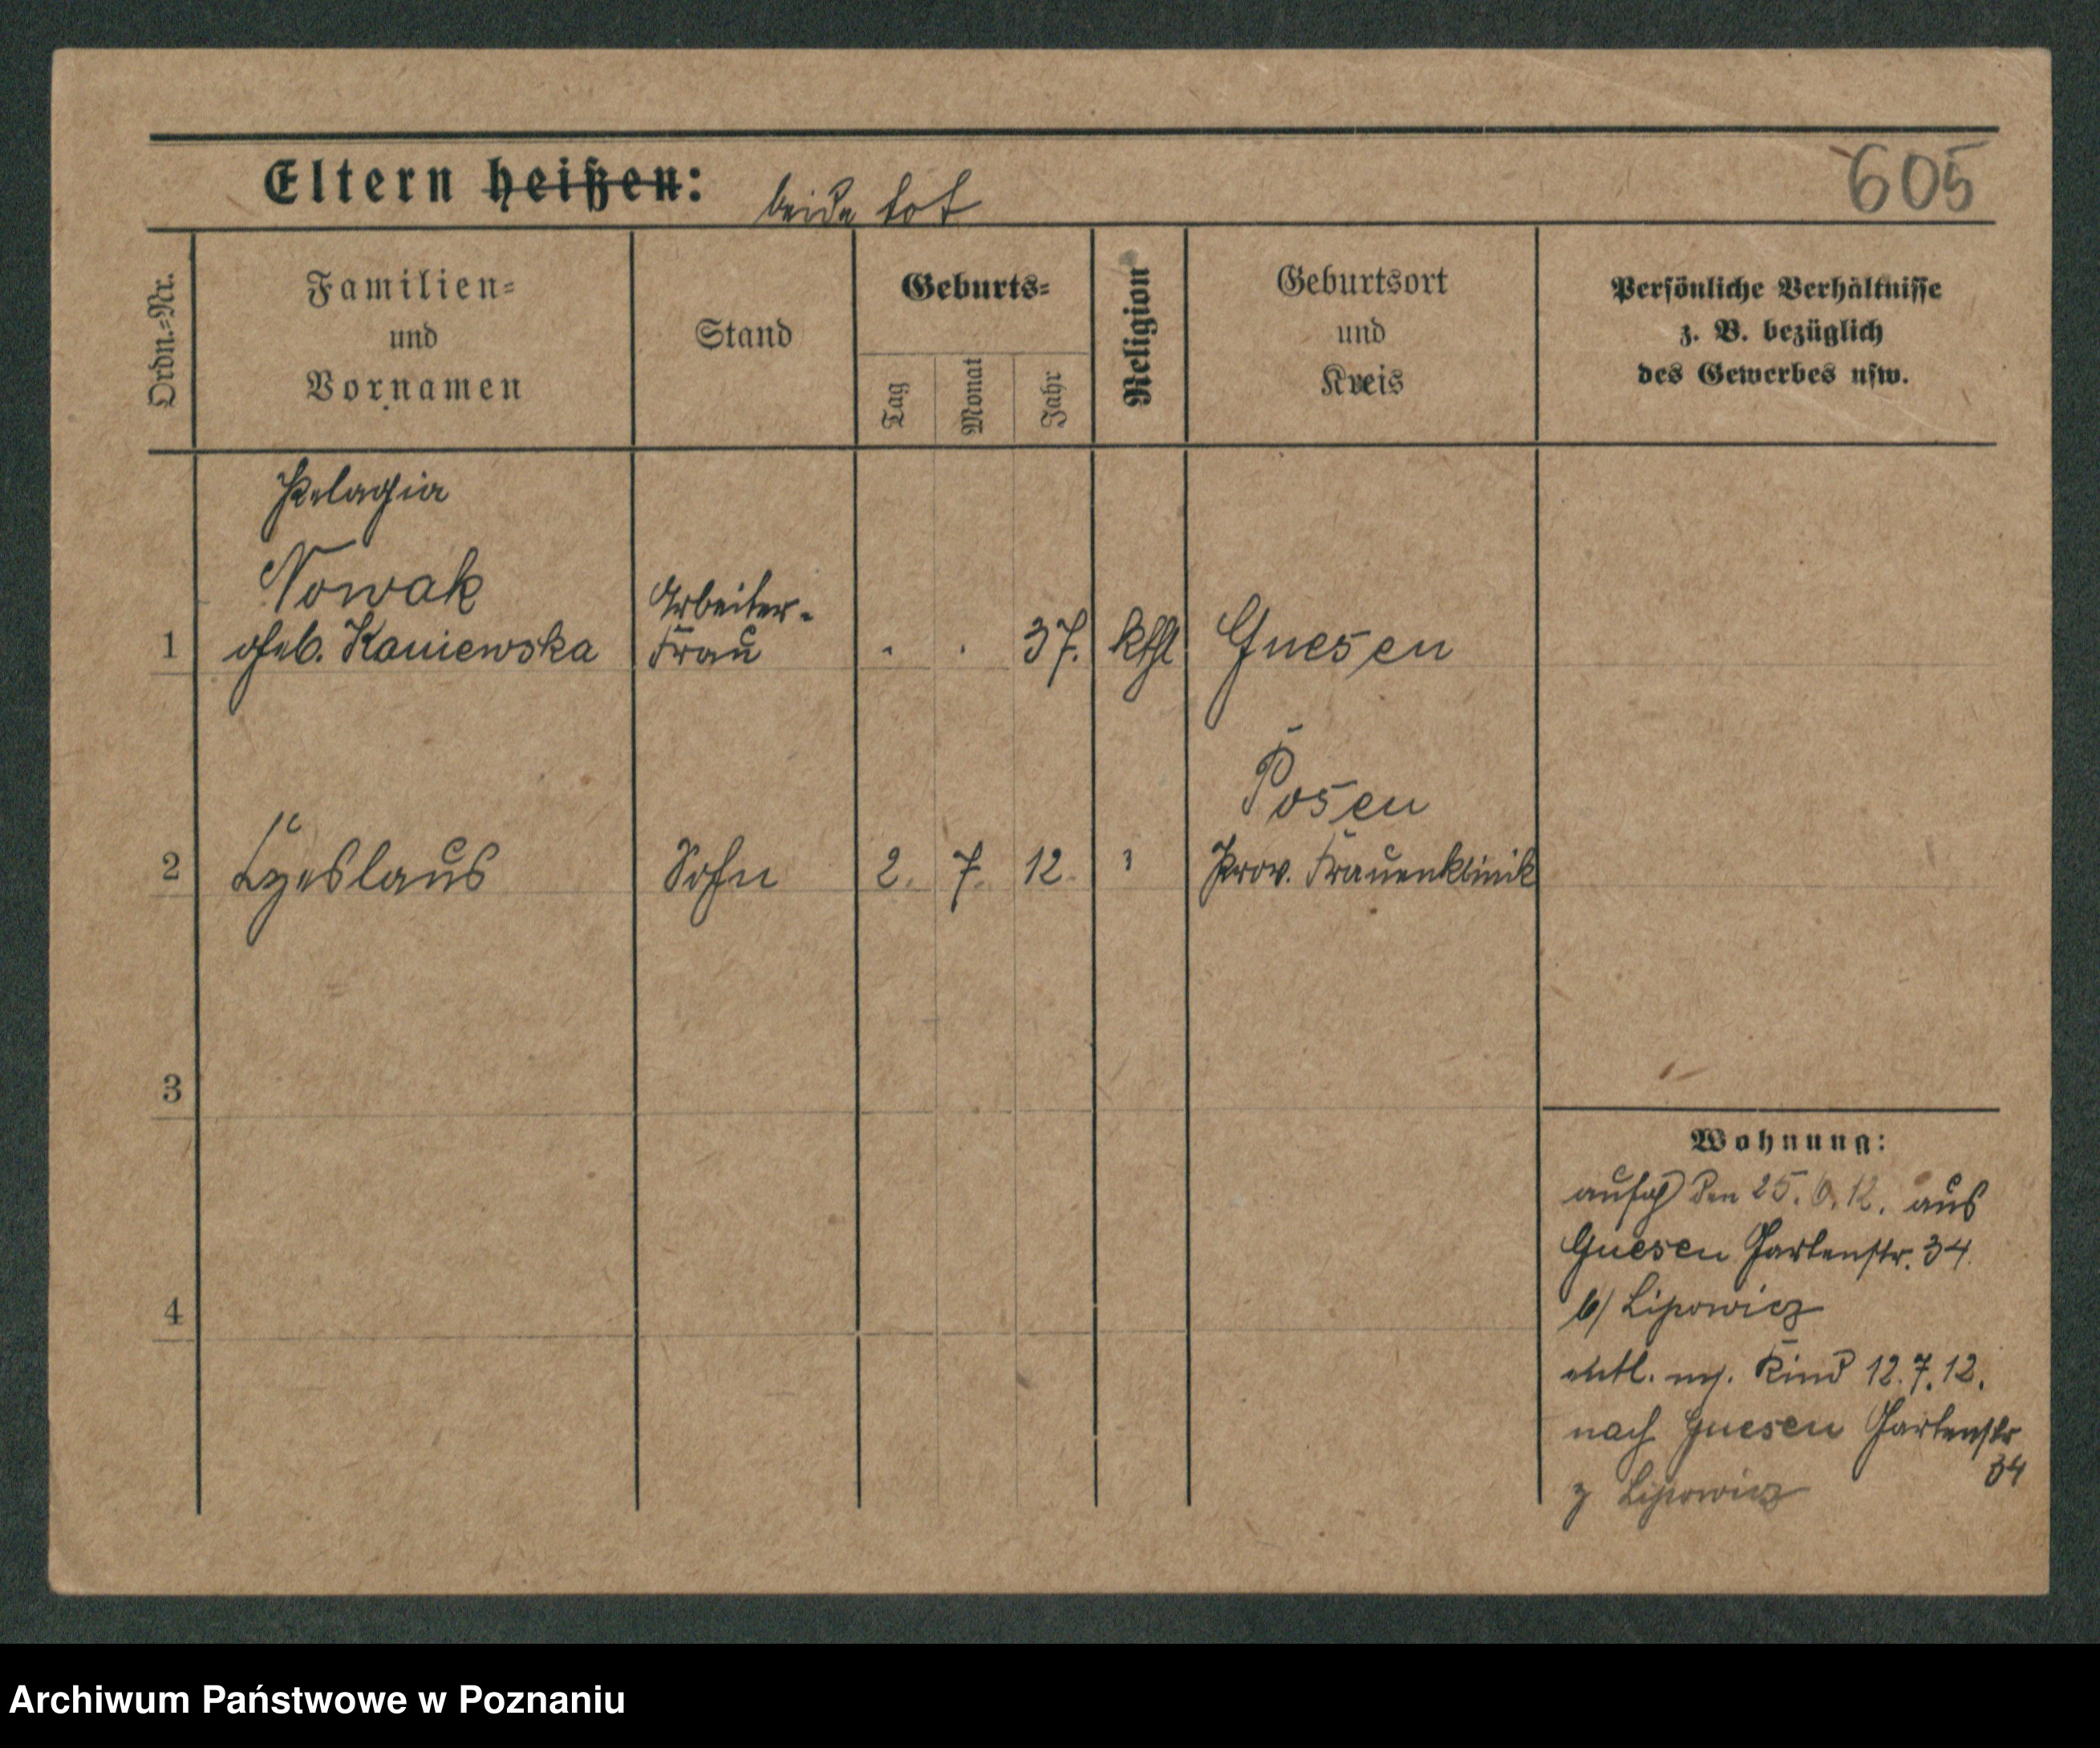 Eltern heißen: beide tot
605
Ordn.=Nr.
Familien=
und
Vornamen
Stand
Geburts=
Tag
Monat
Jahr
Religion
Geburtsort
und
Kreis
Persönliche Verhältnisse
z. B. bezüglich
des Gewerbes usw.
Pelagia
Nowak
1 geb. Kaniewska Arbeiter-
Frau . . 37. kthl Gnesen
Posen
2 Czeslaus Sohn 2. 7. 12. " Prov. Frauenklinik
3
4
Wohnung:
aufg den 25. 6. 12. aus
Gnesen Gartenstr. 34.
b/ Lipowicz
entl. m. Kind 12.7.12.
nach Gnesen Gartenstr
34
z Lipowicz
Archiwum Państwowe w Poznaniu